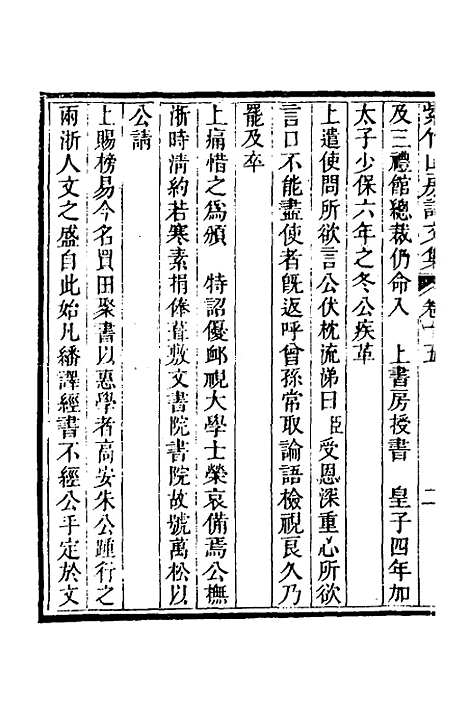 紫竹山房詩文集 卷十五 二
及三禮館總裁仍命入 上書房授書 皇子四年加
太子少保六年之冬公疾革
上遣使問所欲言公伏枕流涕曰臣受恩深重心所欲
言口不能盡使者旣返呼曾孫常取論語檢視良久乃
罷及卒
上痛惜之爲頒 特詔優卹視大學士榮哀備焉公撫
浙時淸約若寒素捐俸葺敷文書院書院故號萬松以
公請
上賜榜易今名買田聚書以惠學者高安朱公踵行之
兩浙人文之盛自此始凡繙譯經書不經公手定於文